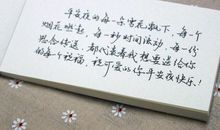 平安夜的每一朵雪花飘下，每个
烟花燃起，每一秒时间流动，每一份
思念传送，都代表着我想要送给你
的每个祝福，祝可爱的你平安夜快乐！